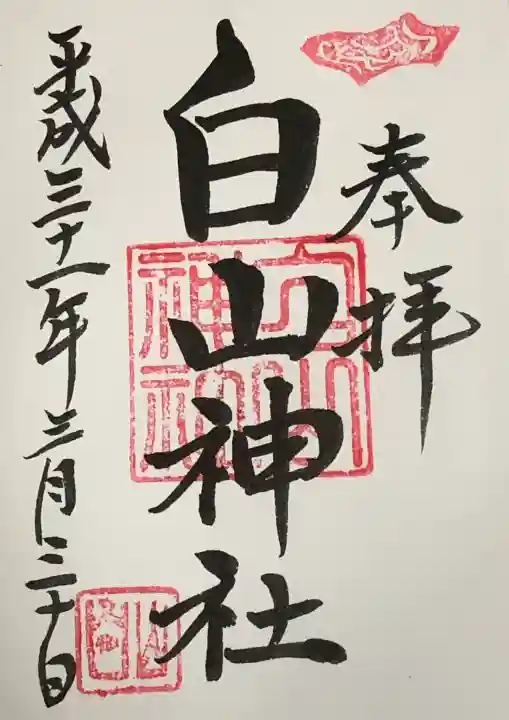 奉拝
白山神社
平成三十一年三月二十日